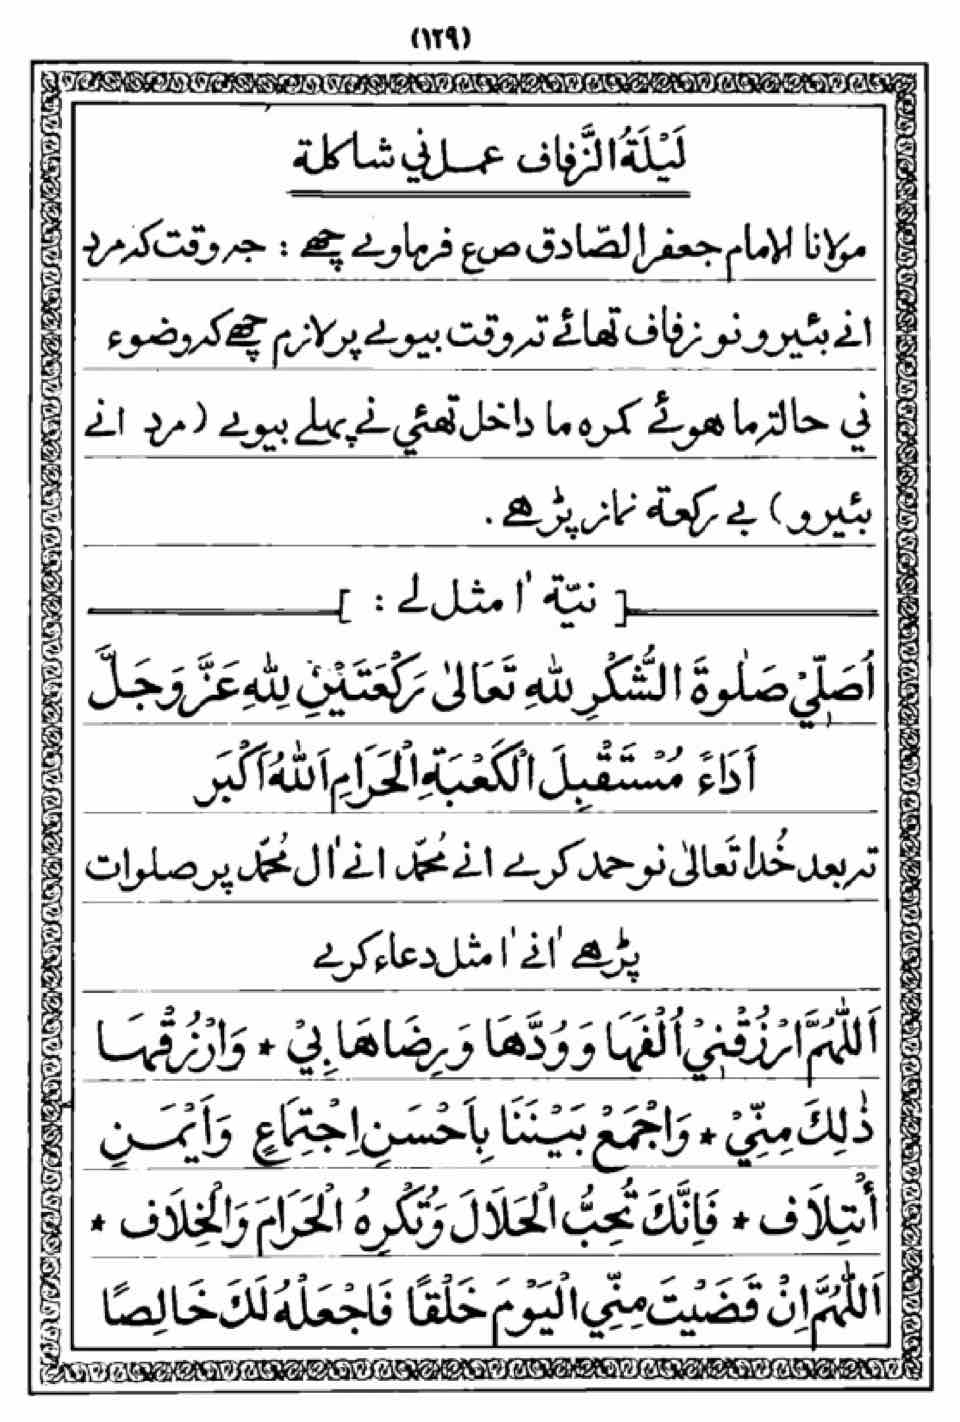 (١٢٩)
لَيْلَةُ الزَّفاف عمل ني شاكلة
مولانا الامام جعفر الصّادق ص ع فرماوے چھے : جہ وقت كہ مرد
انے بئيرو نو زفاف تھائے تہ وقت بيوے پر لازم چھے كہ وضوء
ني حالة ما ھوئے كمره ما داخل تھئي نے پہلے بيوے (مرد انے
بئيرو) بے ركعة نماز پڑھے .
[ نيّة اٰ مثل لے : ]
اُصَلِّيْ صَلٰوةَ الشُّكْرِ لِلّٰهِ تَعَالىٰ رَكْعَتَيْنِ لِلّٰهِ عَزَّ وَجَلَّ
اَدَاءً مُسْتَقْبِلَ الْكَعْبَةِ الْحَرَامِ اَللهُ اَكْبَر
تہ بعد خُدا تَعالىٰ نو حمد كرے انے مُحمّد انے اٰل مُحمّد پر صلوات
پڑھے اٰنے اٰ مثل دعاء كرے
اَللّٰهُمَّ ارْزُقْنِيْ اُلْفَهَا وَوُدَّهَا وَرِضَاهَا بِيْ * وَارْزُقْهَا
ذٰلِكَ مِنِّيْ * وَاجْمَعْ بَيْنَنَا بِاَحْسَنِ اِجْتِمَاعٍ وَاَيْمَنِ
أْتِلَاف * فَاِنَّكَ تُحِبُّ الْحَلَالَ وَتُكْرِهُ الْحَرَامَ وَالْخِلَاف *
اَللّٰهُمَّ اِنْ قَضَيْتَ مِنِّي الْيَوْمَ خَلْقًا فَاجْعَلْهُ لَكَ خَالِصًا